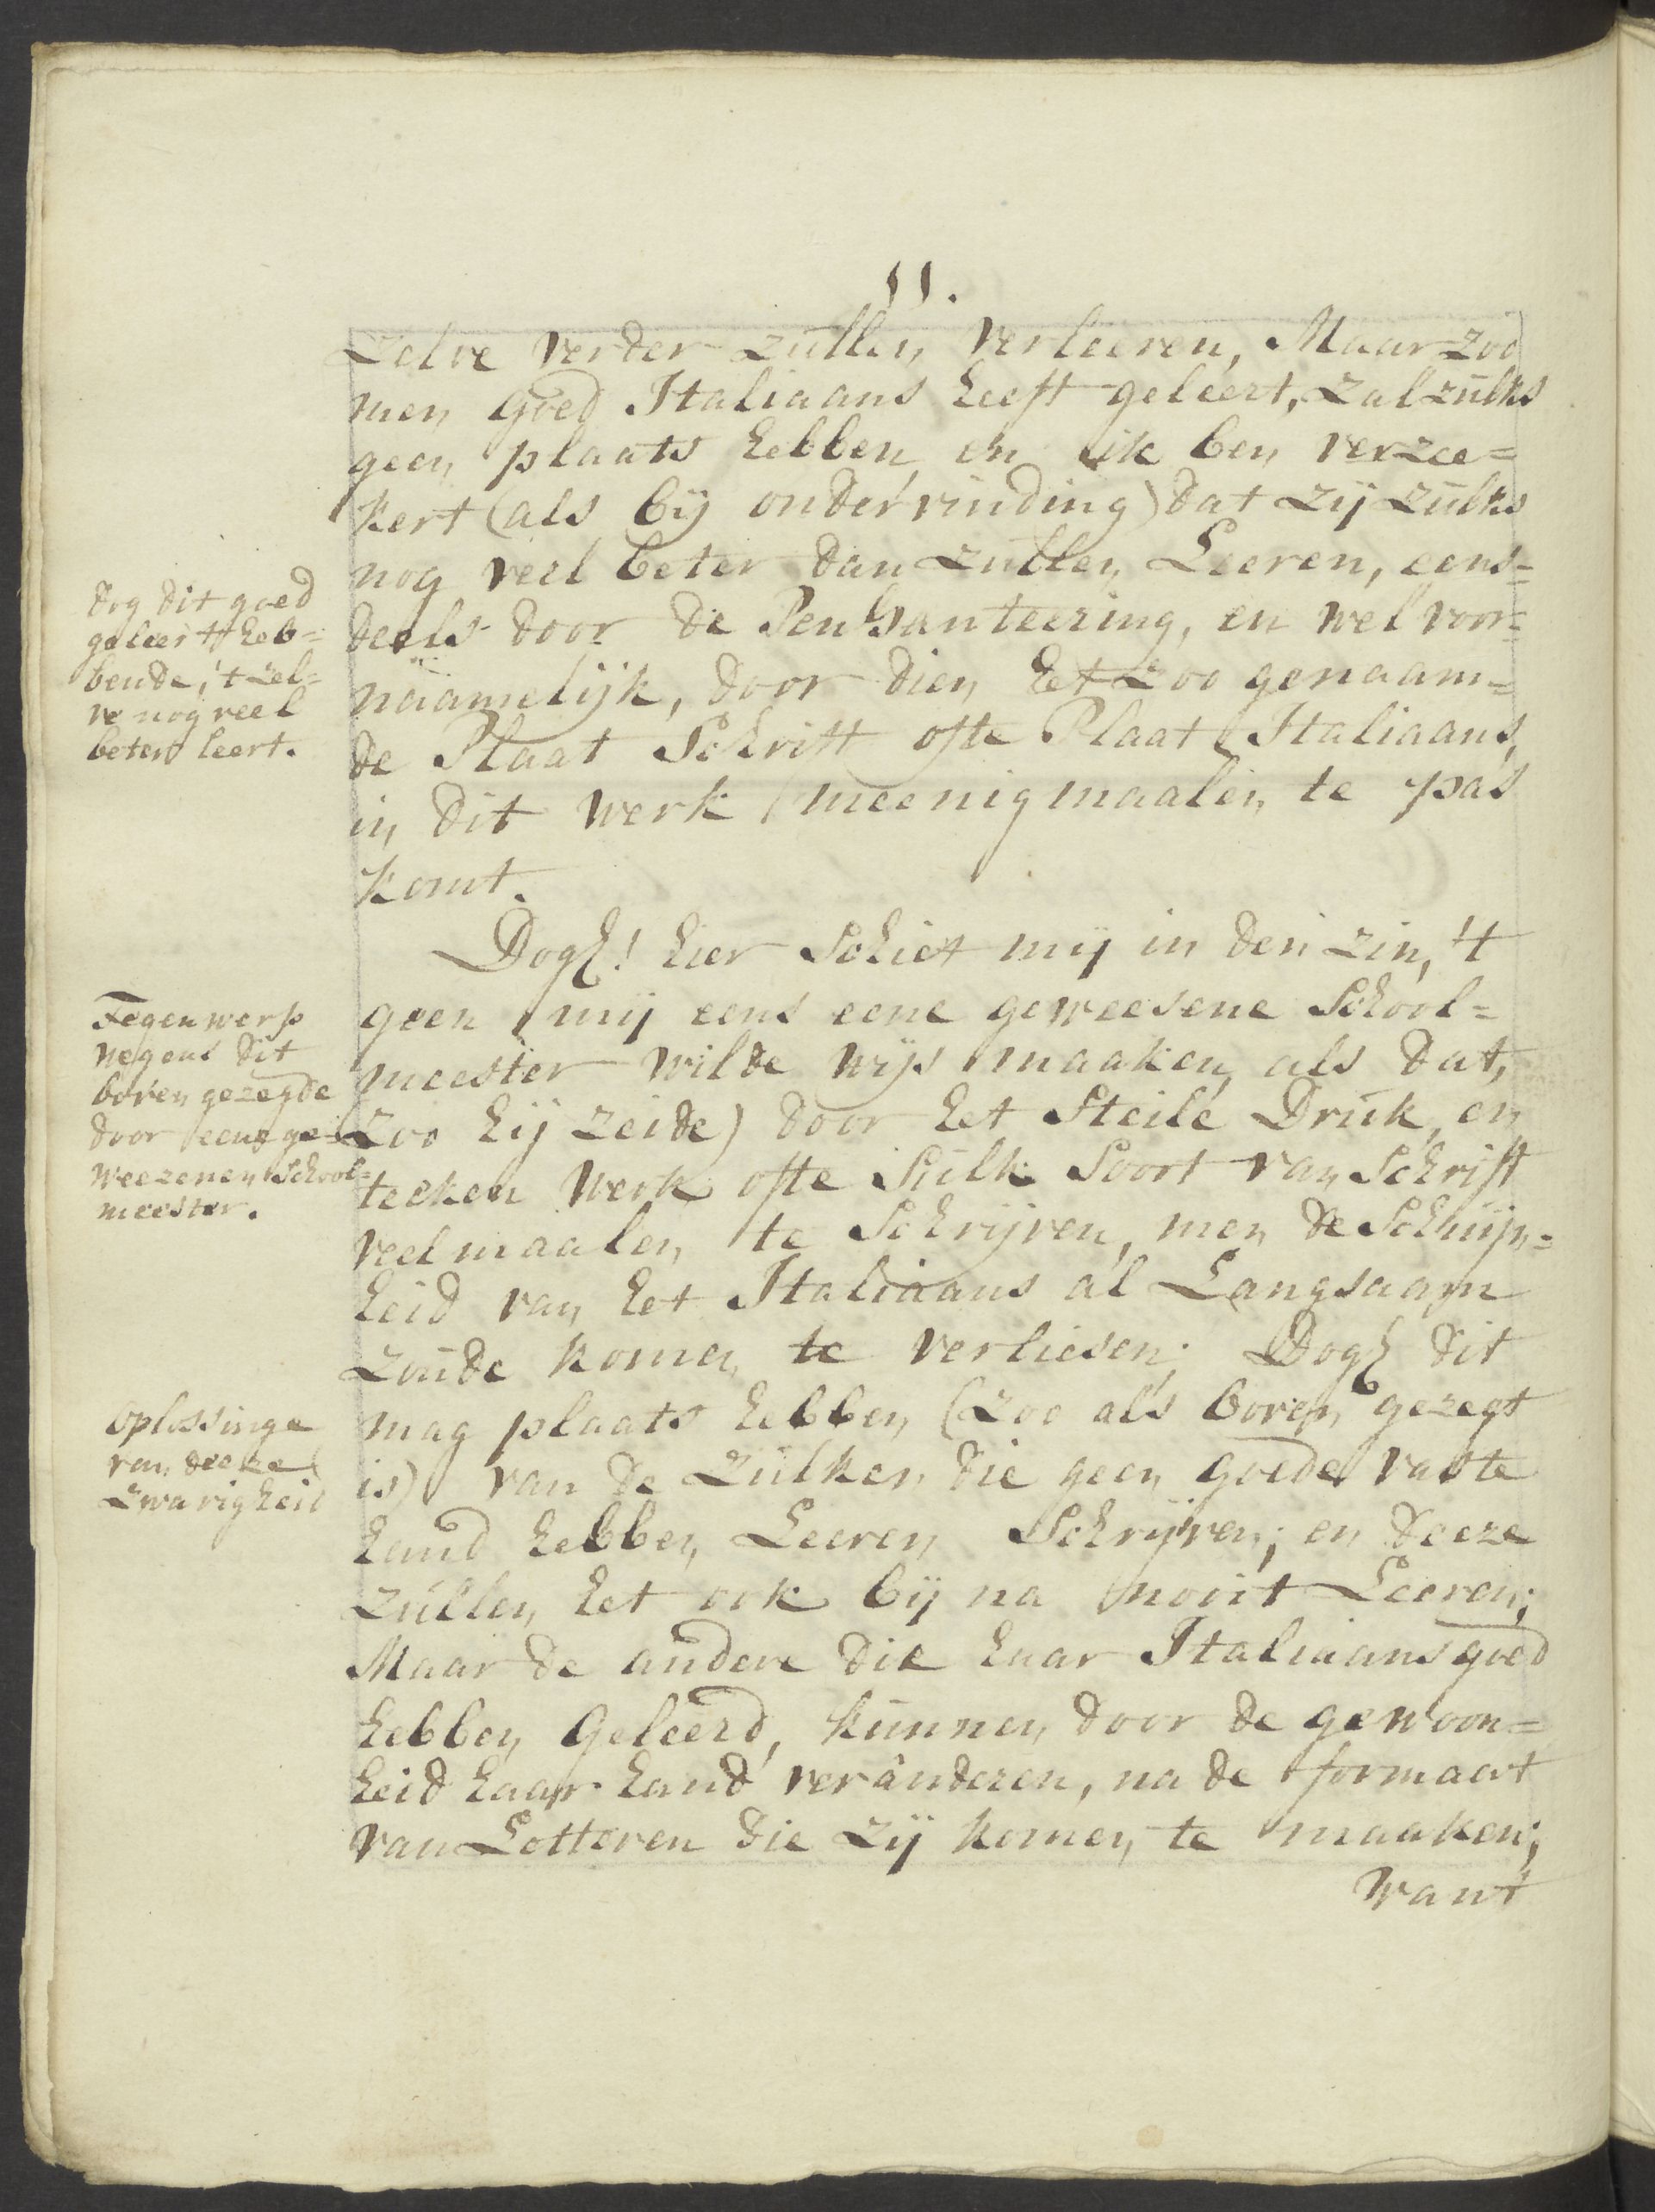 11.
zelve verder zullen verleeren, Maar zoo
men Goed Italiaans heeft geleert, zal zulks
geen plaats hebben, en ik ben verzee=
kert (als bij ondervinding) dat zij zulks
nog veel beter dan zullen Leeren, eens=
deels door de Pen hanteering, en wel voor=
naamelijk, door dien het zoo genaam=
de Plaat Schrift ofte Plaat Italiaans,
in dit werk meenigmaalen te pas
komt.
Dog dit goed
geleert heb=
bende, 't zel=
ve nog veel
beter leert.
Dogh! hier Schiet mij in den zin, 't
geen mij eens eene geweesene School=
meester wilde wijs maaken, als dat,
zoo hij zeide) door het Steile Druk, en
teeken werk ofte Sulk Soort van Schrift
veelmaalen te Schrijven, men de Schuijn=
heid van het Italiaans al Langsaam
zoude komen te verliesen; Dogh dit
mag plaats hebben (zoo als boven gezegt
is) van de zulken die geen goede vaste
hand hebben Leeren Schrijven; en deeze
zullen het ook bij na nooit Leeren;
Maar de andere die haar Italiaans goed
hebben Geleerd, kunnen door de gewoon=
heid haar hand veranderen, na de formaat
van Letteren die zij komen te maaken;
want
Tegenwerp
wegens dit
boven gezegde
door eene ge=
weezenen School=
meester.
oplossinge
van deeze
zwarigheid